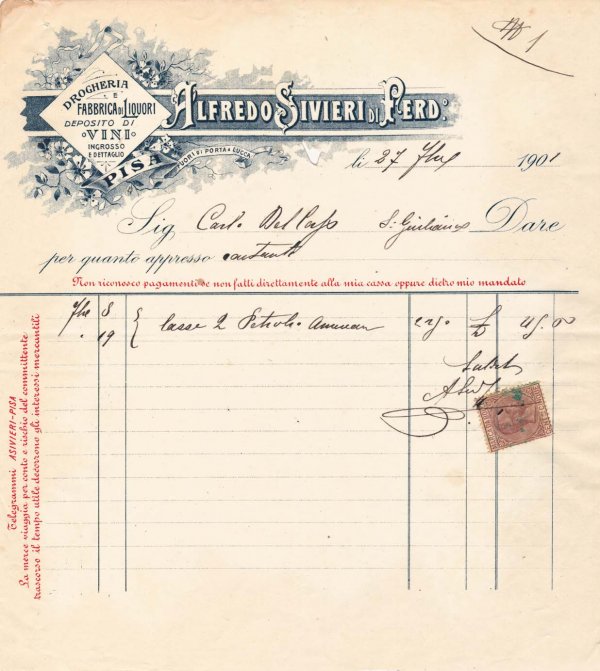 N 1
DROGHERIA
E
FABBRICA DI LIQUORI
DEPOSITO DI
VINI
INGROSSO
E DETTAGLIO
PISA
FUORI PORTA A LUCCA
ALFREDO SIVIERI DI FERD.o
li 27 7bre 1901
Sig Carlo Del S. Giuliano Dare
per quanto appresso contanti
Non riconosco pagamento se non fatti direttamente alla mia cassa oppure dietro mio mandato
7bre 8
" 19 Casse 2 Petrolio £ 45.00
Telegrammi ASIVIERI-PISA
La merce viaggia per conto e rischio del committente
trascorso il tempo utile decorrono gli interessi mercantili